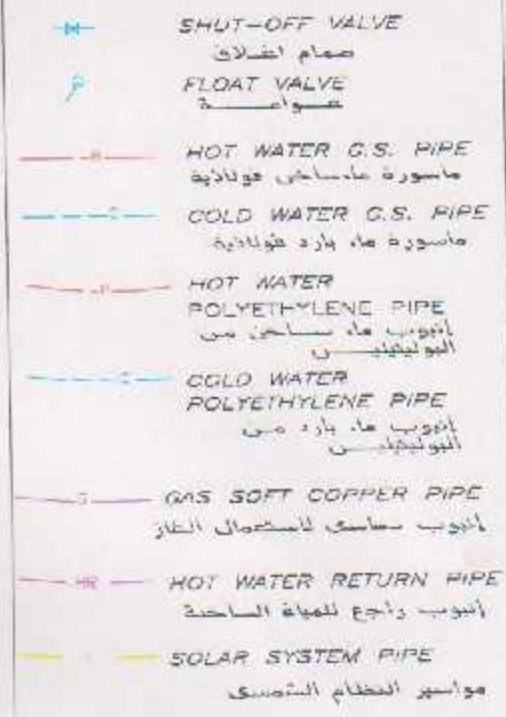 SHUT-OFF VALVE
صمام اغلاق
FLOAT VALVE
عوامة
H HOT WATER G.S. PIPE
ماسورة ماء ساخن فولاذية
COLD WATER G.S. PIPE
ماسورة ماء بارد فولاذية
HOT WATER
POLYETHYLENE PIPE
إنبوب ماء ساخن من
البوليثيلين
COLD WATER
POLYETHYLENE PIPE
إنبوب ماء بارد من
البوليثيلين
G GAS SOFT COPPER PIPE
إنبوب نحاسى لاستعمال الغاز
HR HOT WATER RETURN PIPE
إنبوب راجع للمياة الساخنة
SOLAR SYSTEM PIPE
مواسير النظام الشمسى